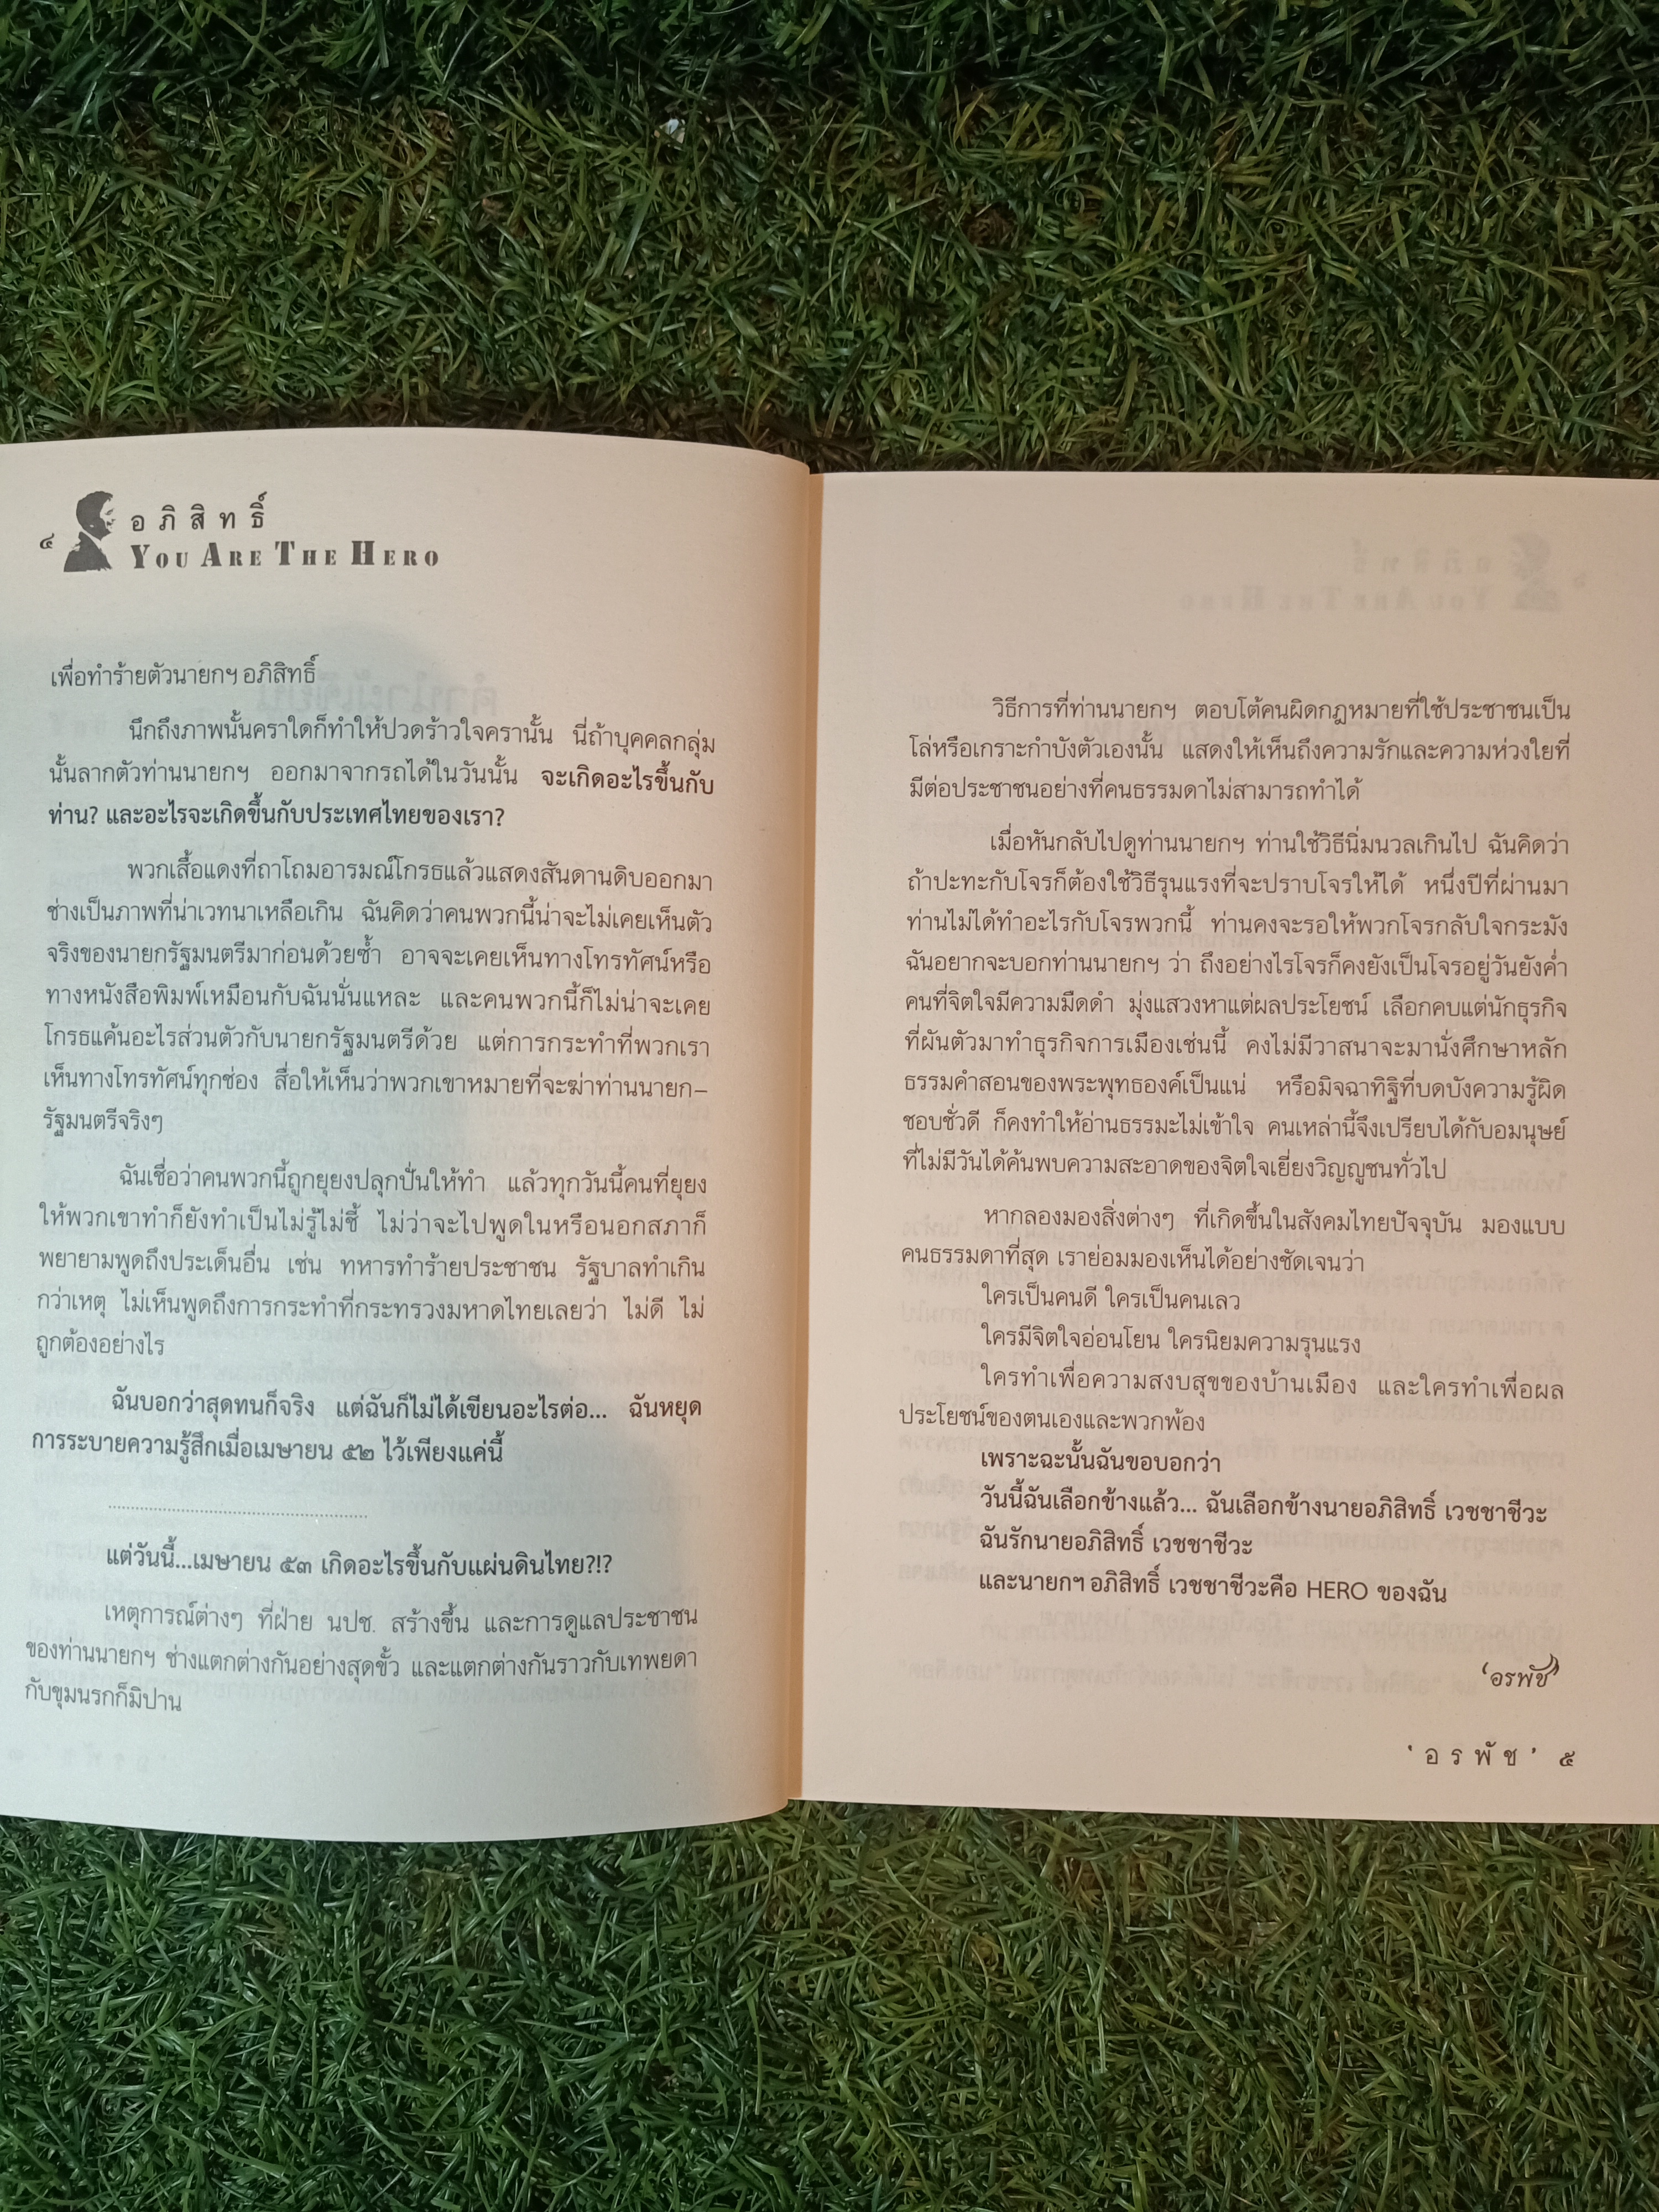 ๔
อภิสิทธิ์
YOU ARE THE HERO
เพื่อทำร้ายตัวนายกฯ อภิสิทธิ์
นึกถึงภาพนั้นคราใดก็ทำให้ปวดร้าวใจครานั้น นี่ถ้าบุคคลกลุ่ม
นั้นลากตัวท่านนายกฯ ออกมาจากรถได้ในวันนั้น จะเกิดอะไรขึ้นกับ
ท่าน? และอะไรจะเกิดขึ้นกับประเทศไทยของเรา?
พวกเสื้อแดงที่ถาโถมอารมณ์โกรธแล้วแสดงสันดานดิบออกมา
ช่างเป็นภาพที่น่าเวทนาเหลือเกิน ฉันคิดว่าคนพวกนี้น่าจะไม่เคยเห็นตัว
จริงของนายกรัฐมนตรีมาก่อนด้วยซ้ำ อาจจะเคยเห็นทางโทรทัศน์หรือ
ทางหนังสือพิมพ์เหมือนกับฉันนั่นแหละ และคนพวกนี้ก็ไม่น่าจะเคย
โกรธแค้นอะไรส่วนตัวกับนายกรัฐมนตรีด้วย แต่การกระทำที่พวกเรา
เห็นทางโทรทัศน์ทุกช่อง สื่อให้เห็นว่าพวกเขาหมายที่จะฆ่าท่านนายก–
รัฐมนตรีจริงๆ
ฉันเชื่อว่าคนพวกนี้ถูกยุยงปลุกปั่นให้ทำ แล้วทุกวันนี้คนที่ยุยง
ให้พวกเขาทำก็ยังทำเป็นไม่รู้ไม่ชี้ ไม่ว่าจะไปพูดในหรือนอกสภาก็
พยายามพูดถึงประเด็นอื่น เช่น ทหารทำร้ายประชาชน รัฐบาลทำเกิน
กว่าเหตุ ไม่เห็นพูดถึงการกระทำที่กระทรวงมหาดไทยเลยว่า ไม่ดี ไม่
ถูกต้องอย่างไร
ฉันบอกว่าสุดทนก็จริง แต่ฉันก็ไม่ได้เขียนอะไรต่อ... ฉันหยุด
การระบายความรู้สึกเมื่อเมษายน ๕๒ ไว้เพียงแค่นี้
............................................................
แต่วันนี้...เมษายน ๕๓ เกิดอะไรขึ้นกับแผ่นดินไทย?!?
เหตุการณ์ต่างๆ ที่ฝ่าย นปช. สร้างขึ้น และการดูแลประชาชน
ของท่านนายกฯ ช่างแตกต่างกันอย่างสุดขั้ว และแตกต่างกันราวกับเทพยดา
กับขุมนรกก็มิปาน
วิธีการที่ท่านนายกฯ ตอบโต้คนผิดกฎหมายที่ใช้ประชาชนเป็น
โล่หรือเกราะกำบังตัวเองนั้น แสดงให้เห็นถึงความรักและความห่วงใยที่
มีต่อประชาชนอย่างที่คนธรรมดาไม่สามารถทำได้
เมื่อหันกลับไปดูท่านนายกฯ ท่านใช้วิธีนิ่มนวลเกินไป ฉันคิดว่า
ถ้าปะทะกับโจรก็ต้องใช้วิธีรุนแรงที่จะปราบโจรให้ได้ หนึ่งปีที่ผ่านมา
ท่านไม่ได้ทำอะไรกับโจรพวกนี้ ท่านคงจะรอให้พวกโจรกลับใจกระมัง
ฉันอยากจะบอกท่านนายกฯ ว่า ถึงอย่างไรโจรก็คงยังเป็นโจรอยู่วันยังค่ำ
คนที่จิตใจมีความมืดดำ มุ่งแสวงหาแต่ผลประโยชน์ เลือกคบแต่นักธุรกิจ
ที่ผันตัวมาทำธุรกิจการเมืองเช่นนี้ คงไม่มีวาสนาจะมานั่งศึกษาหลัก
ธรรมคำสอนของพระพุทธองค์เป็นแน่ หรือมิจฉาทิฐิที่บดบังความรู้ผิด
ชอบชั่วดี ก็คงทำให้อ่านธรรมะไม่เข้าใจ คนเหล่านี้จึงเปรียบได้กับอมนุษย์
ที่ไม่มีวันได้ค้นพบความสะอาดของจิตใจเยี่ยงวิญญูชนทั่วไป
หากลองมองสิ่งต่างๆ ที่เกิดขึ้นในสังคมไทยปัจจุบัน มองแบบ
คนธรรมดาที่สุด เราย่อมมองเห็นได้อย่างชัดเจนว่า
ใครเป็นคนดี ใครเป็นคนเลว
ใครมีจิตใจอ่อนโยน ใครนิยมความรุนแรง
ใครทำเพื่อความสงบสุขของบ้านเมือง และใครทำเพื่อผล
ประโยชน์ของตนเองและพวกพ้อง
เพราะฉะนั้นฉันขอบอกว่า
วันนี้ฉันเลือกข้างแล้ว... ฉันเลือกข้างนายอภิสิทธิ์ เวชชาชีวะ
ฉันรักนายอภิสิทธิ์ เวชชาชีวะ
และนายกฯ อภิสิทธิ์ เวชชาชีวะคือ HERO ของฉัน
‘อรพัช’
‘อรพัช’ ๕